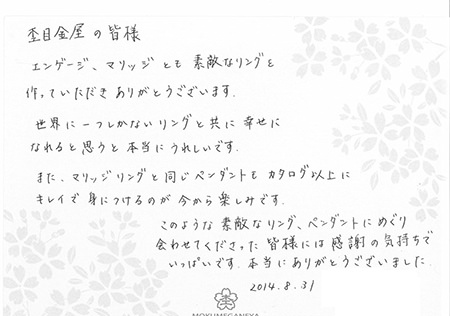 杢目金屋の皆様
エンゲージ、マリッジとも素敵なリングを
作っていただきありがとうございます.
世界に一つしかないリングと共に幸せに
なれると思うと本当にうれしいです.
また、マリッジリングと同じペンダントもカタログ以上に
キレイで身につけるのが今から楽しみです.
このような素敵なリング、ペンダントにめぐり
会わせてくださった皆様には感謝の気持ちで
いっぱいです.本当にありがとうございました.
2014.8.31
MOKUMEGANEYA